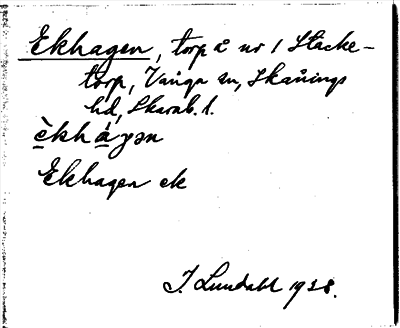 Ekhagen, torp å nr 1 Stäcke-
torp, Vånga sn, Skånings
hd, Skarab. l.
èkhá̱γən
Ekhagen ek
I. Lundahl 1928.